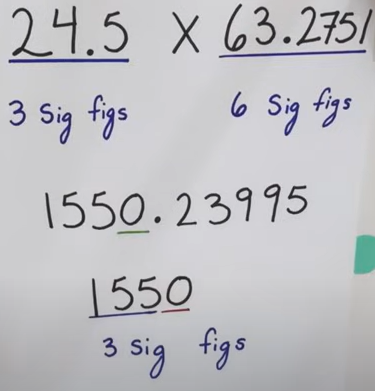 24.5 X 63.2751
3 Sig figs 6 Sig figs
1550.23995
1550
3 Sig figs